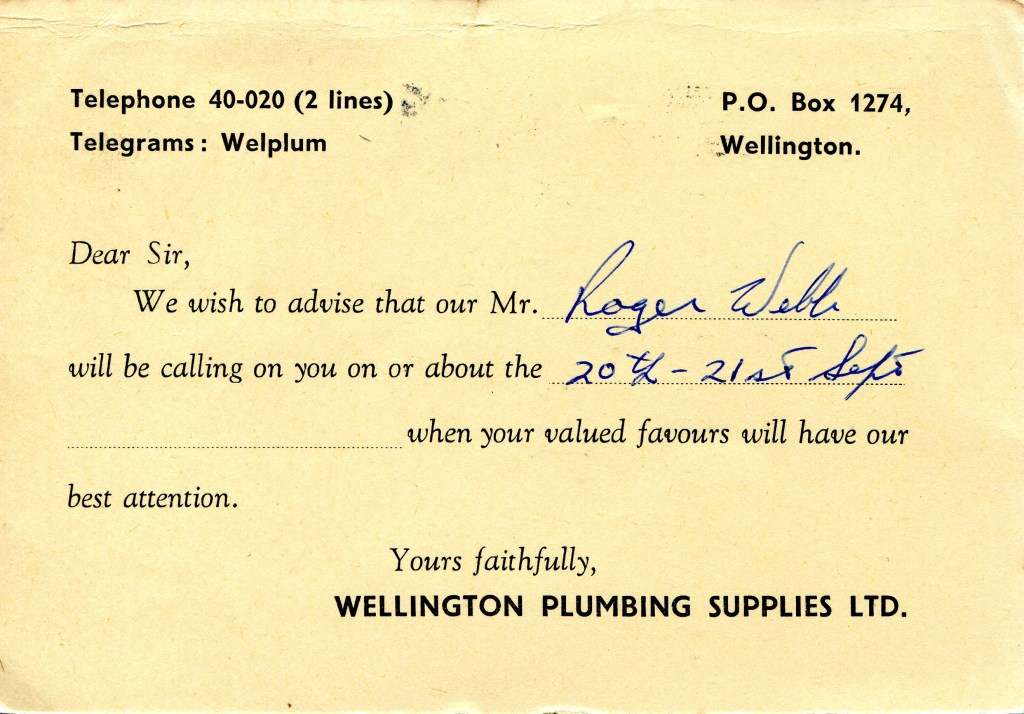 Telephone 40-020 (2 lines)
P.O. Box 1274,
Telegrams: Welplum
Wellington.
Dear Sir,
We wish to advise that our Mr. Roger Webb
will be calling on you on or about the 20th - 21st Sept
when your valued favours will have our
best attention.
Yours faithfully,
WELLINGTON PLUMBING SUPPLIES LTD.